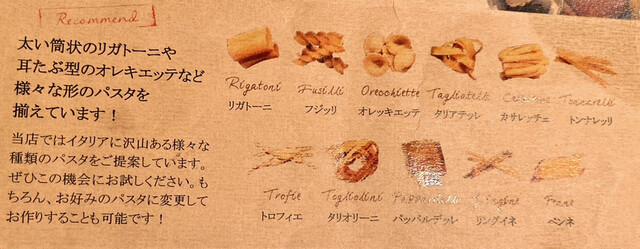 Recommend
太い筒状のリガトーニや
耳たぶ型のオレキエッテなど
様々な形のパスタを
揃えています！
当店ではイタリアに沢山ある様々な
種類のパスタをご提案しています。
ぜひこの機会にお試しください。も
ちろん、お好みのパスタに変更して
お作りすることも可能です！
Rigatoni Fusilli Orecchiette Tagliatelle
リガトーニ フジッリ オレッキエッテ タリアテッレ カサレッチェ トンナレッリ
Trofie Tagliolini Penne
トロフィエ タリオリーニ パッパルデッレ リングイネ ペンネ